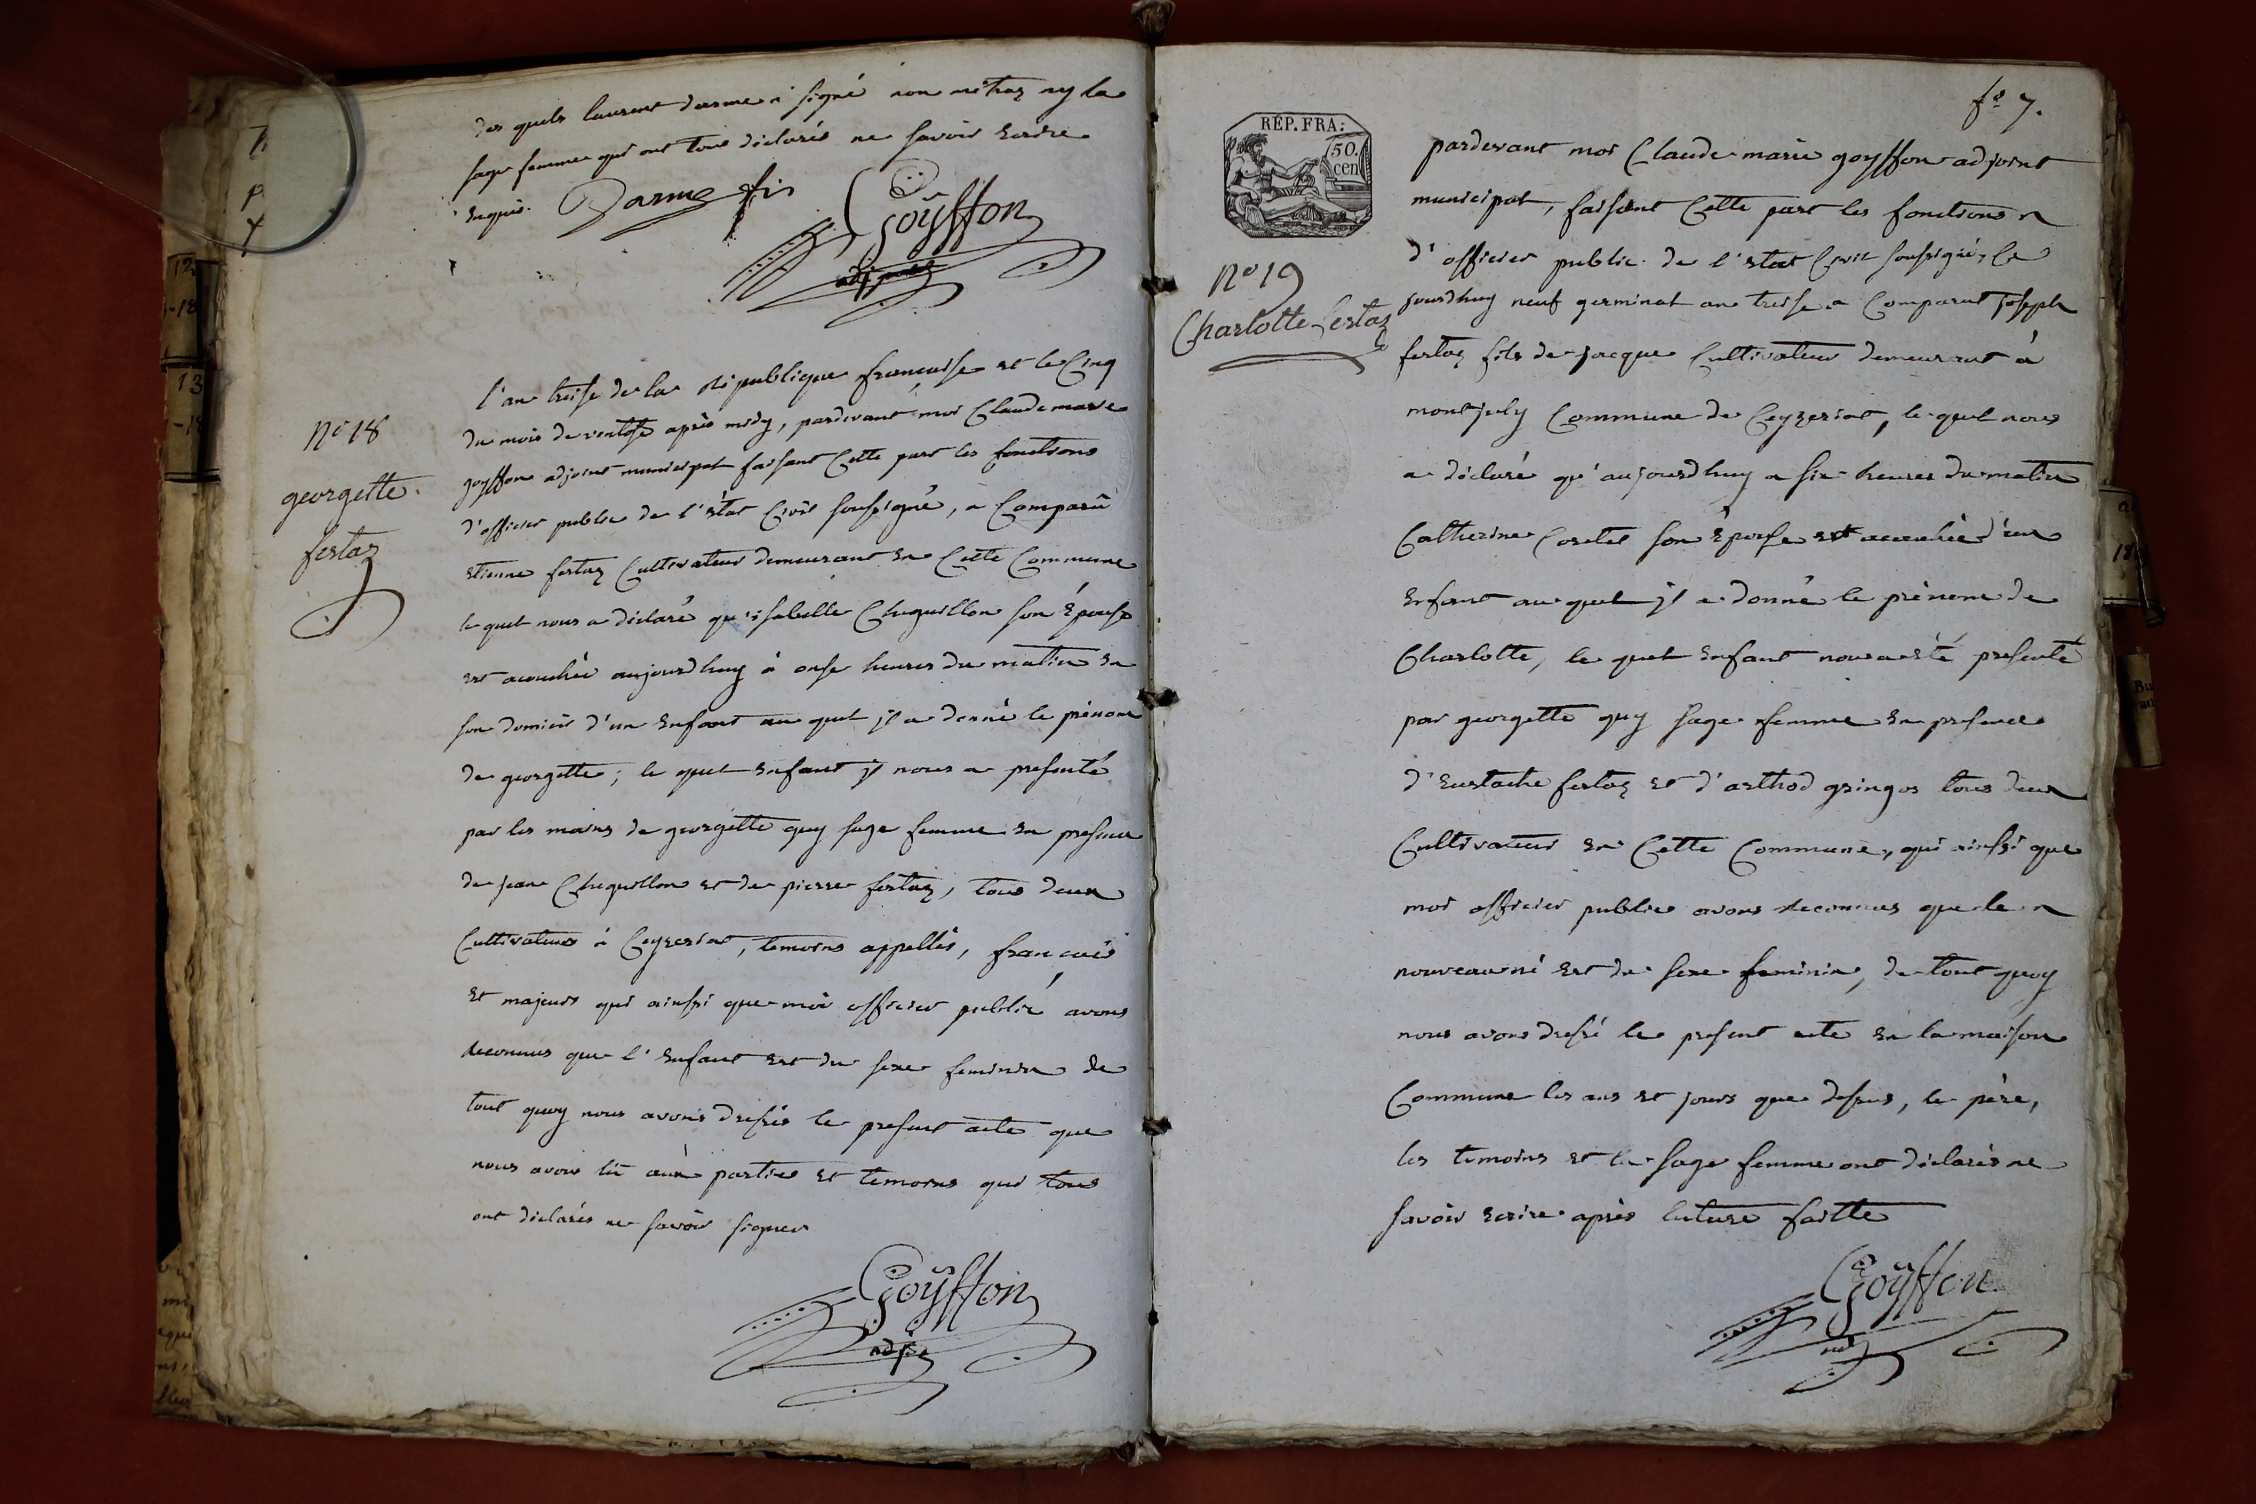 des quels laurent darme a signé non métraz ny la
sage femme qui ont tous déclarés ne savoir Ecrire
Enquis. Darme fis
Goÿffon
adjoint
l'an treise de la république francaise et le Cinq
du mois de ventose après midy, pardevant moi Claude marie
N° 18
goyffon adjoint municipal faisant Cette part les fonctions
georgette
d'officier public de l'état Civil soussigné, a Comparû
festaz
etienne festaz Cultivateur demeurant En Cette Commune
le quel nous a déclaré qu'isabelle Chuguillon son Épouse
est acouchée aujourdhuy à onse heures du matin En
son domicis d'un Enfant au quel jl a donné le prénom
de georgette; le quel Enfant jl nous a presenté
par les mains de georgette guy sage femme En presence
de jean Chuguillon et de pierre festaz, tous deux
Cultivateurs à Ceyzeriat, temoins appellés, francais
Et majeurs qui ainssi que moi officier public avons
reconnus que l'Enfant Est du sexe feminin de
tout quoy nous avons dressés le present acte que
nous avons lû aux parties Et temoins qui tous
ont déclarés ne savoir signer
Goÿffon
adjt
f° 7.
RÉP. FRA:
50.
cen
pardevant moi Claude marie goyffon adjoint
municipal, faisant Cette part les fonctions
d'officier public de l'état Civil soussigné, Ce
N° 19
jourdhuy neuf germinal an treise a Comparut joseph
Charlotte festaz
festaz fils de jacque Cultivateur demeurant à
montjuly Commune de Ceyzeriat, le quel nous
a déclaré qu'aujourdhuy a six heures du matin
Catherine Coretet son Épouse est acouchée d'un
Enfant au quel jl a donné le prénom de
Charlotte, le quel Enfant nous a eté presenté
par georgette guy sage femme En presence
d'Eustache festaz et d'arthod gringos tous deux
Cultivateurs En Cette Commune, qui ainssi que
moi officier public avons reconnus que le
nouveau né Est du sexe feminin, de tout quoy
nous avons dressé le present acte En la maison
Commune les ans et jours que dessus, le père,
les temoins et la sage femme ont déclarés ne
savoir Ecrire après lecture faitte
Goÿffon
adj